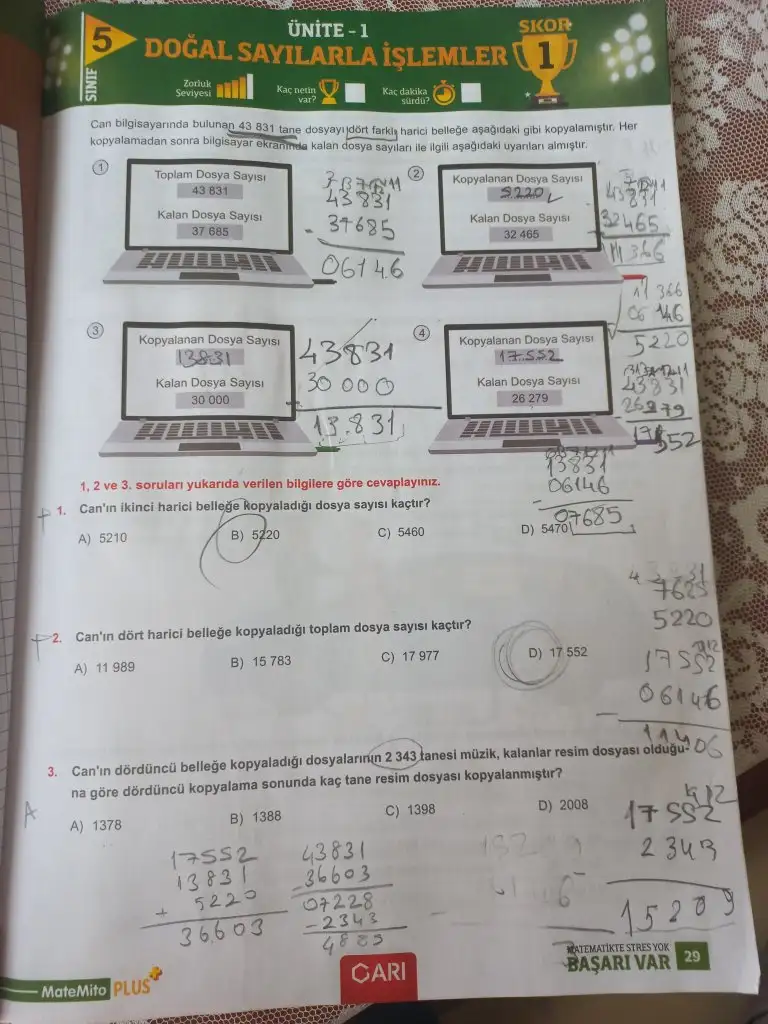 5
SINIF
ÜNİTE - 1
DOĞAL SAYILARLA İŞLEMLER
SKOR
1
Zorluk Seviyesi
Kaç netin var?
Kaç dakika sürdü?
Can bilgisayarında bulunan 43 831 tane dosyayı dört farklı harici belleğe aşağıdaki gibi kopyalamıştır. Her
kopyalamadan sonra bilgisayar ekranında kalan dosya sayıları ile ilgili aşağıdaki uyarıları almıştır.
1
Toplam Dosya Sayısı
43 831
Kalan Dosya Sayısı
37 685
43831
- 37685
06146
2
Kopyalanan Dosya Sayısı
5220
Kalan Dosya Sayısı
32 465
32465
11366
11 366
06 146
5220
3
Kopyalanan Dosya Sayısı
13831
Kalan Dosya Sayısı
30 000
43831
30 000
13.831
4
Kopyalanan Dosya Sayısı
17.552
Kalan Dosya Sayısı
26 279
43831
26279
17552
1, 2 ve 3. soruları yukarıda verilen bilgilere göre cevaplayınız.
13831
- 06146
07685
1. Can'ın ikinci harici belleğe kopyaladığı dosya sayısı kaçtır?
A) 5210 B) 5220 C) 5460 D) 5470
5220
2. Can'ın dört harici belleğe kopyaladığı toplam dosya sayısı kaçtır?
A) 11 989 B) 15 783 C) 17 977 D) 17 552
17552
- 06146
11406
3. Can'ın dördüncü belleğe kopyaladığı dosyalarının 2 343 tanesi müzik, kalanlar resim dosyası olduğu-
na göre dördüncü kopyalama sonunda kaç tane resim dosyası kopyalanmıştır?
A) 1378 B) 1388 C) 1398 D) 2008
17552
13831
+ 5220
36.603
43831
- 36603
07228
- 2343
4885
17552
2343
15209
MateMito PLUS+
ARI
MATEMATİKTE STRES YOK
BAŞARI VAR
29